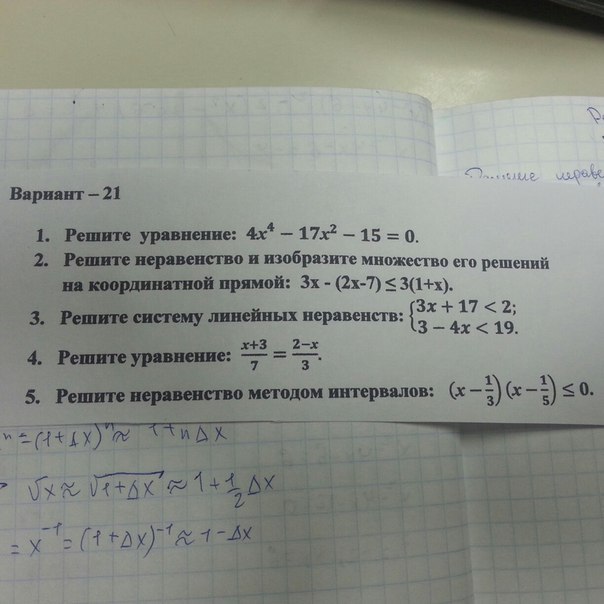 Решите нераве
Вариант – 21
1. Решите уравнение: 4x⁴ − 17x² − 15 = 0.
2. Решите неравенство и изобразите множество его решений
на координатной прямой: 3x - (2x-7) ≤ 3(1+x).
3. Решите систему линейных неравенств: {3x + 17 < 2;
3 − 4x < 19.
4. Решите уравнение: (x+3)/7 = (2−x)/3.
5. Решите неравенство методом интервалов: (x − 1/3)(x − 1/5) ≤ 0.
ⁿ = (1+Δx)ⁿ ≈ 1+nΔx
√x ≈ √(1+Δx) ≈ 1 + 1/2 Δx
= x⁻¹ = (1+Δx)⁻¹ ≈ 1-Δx